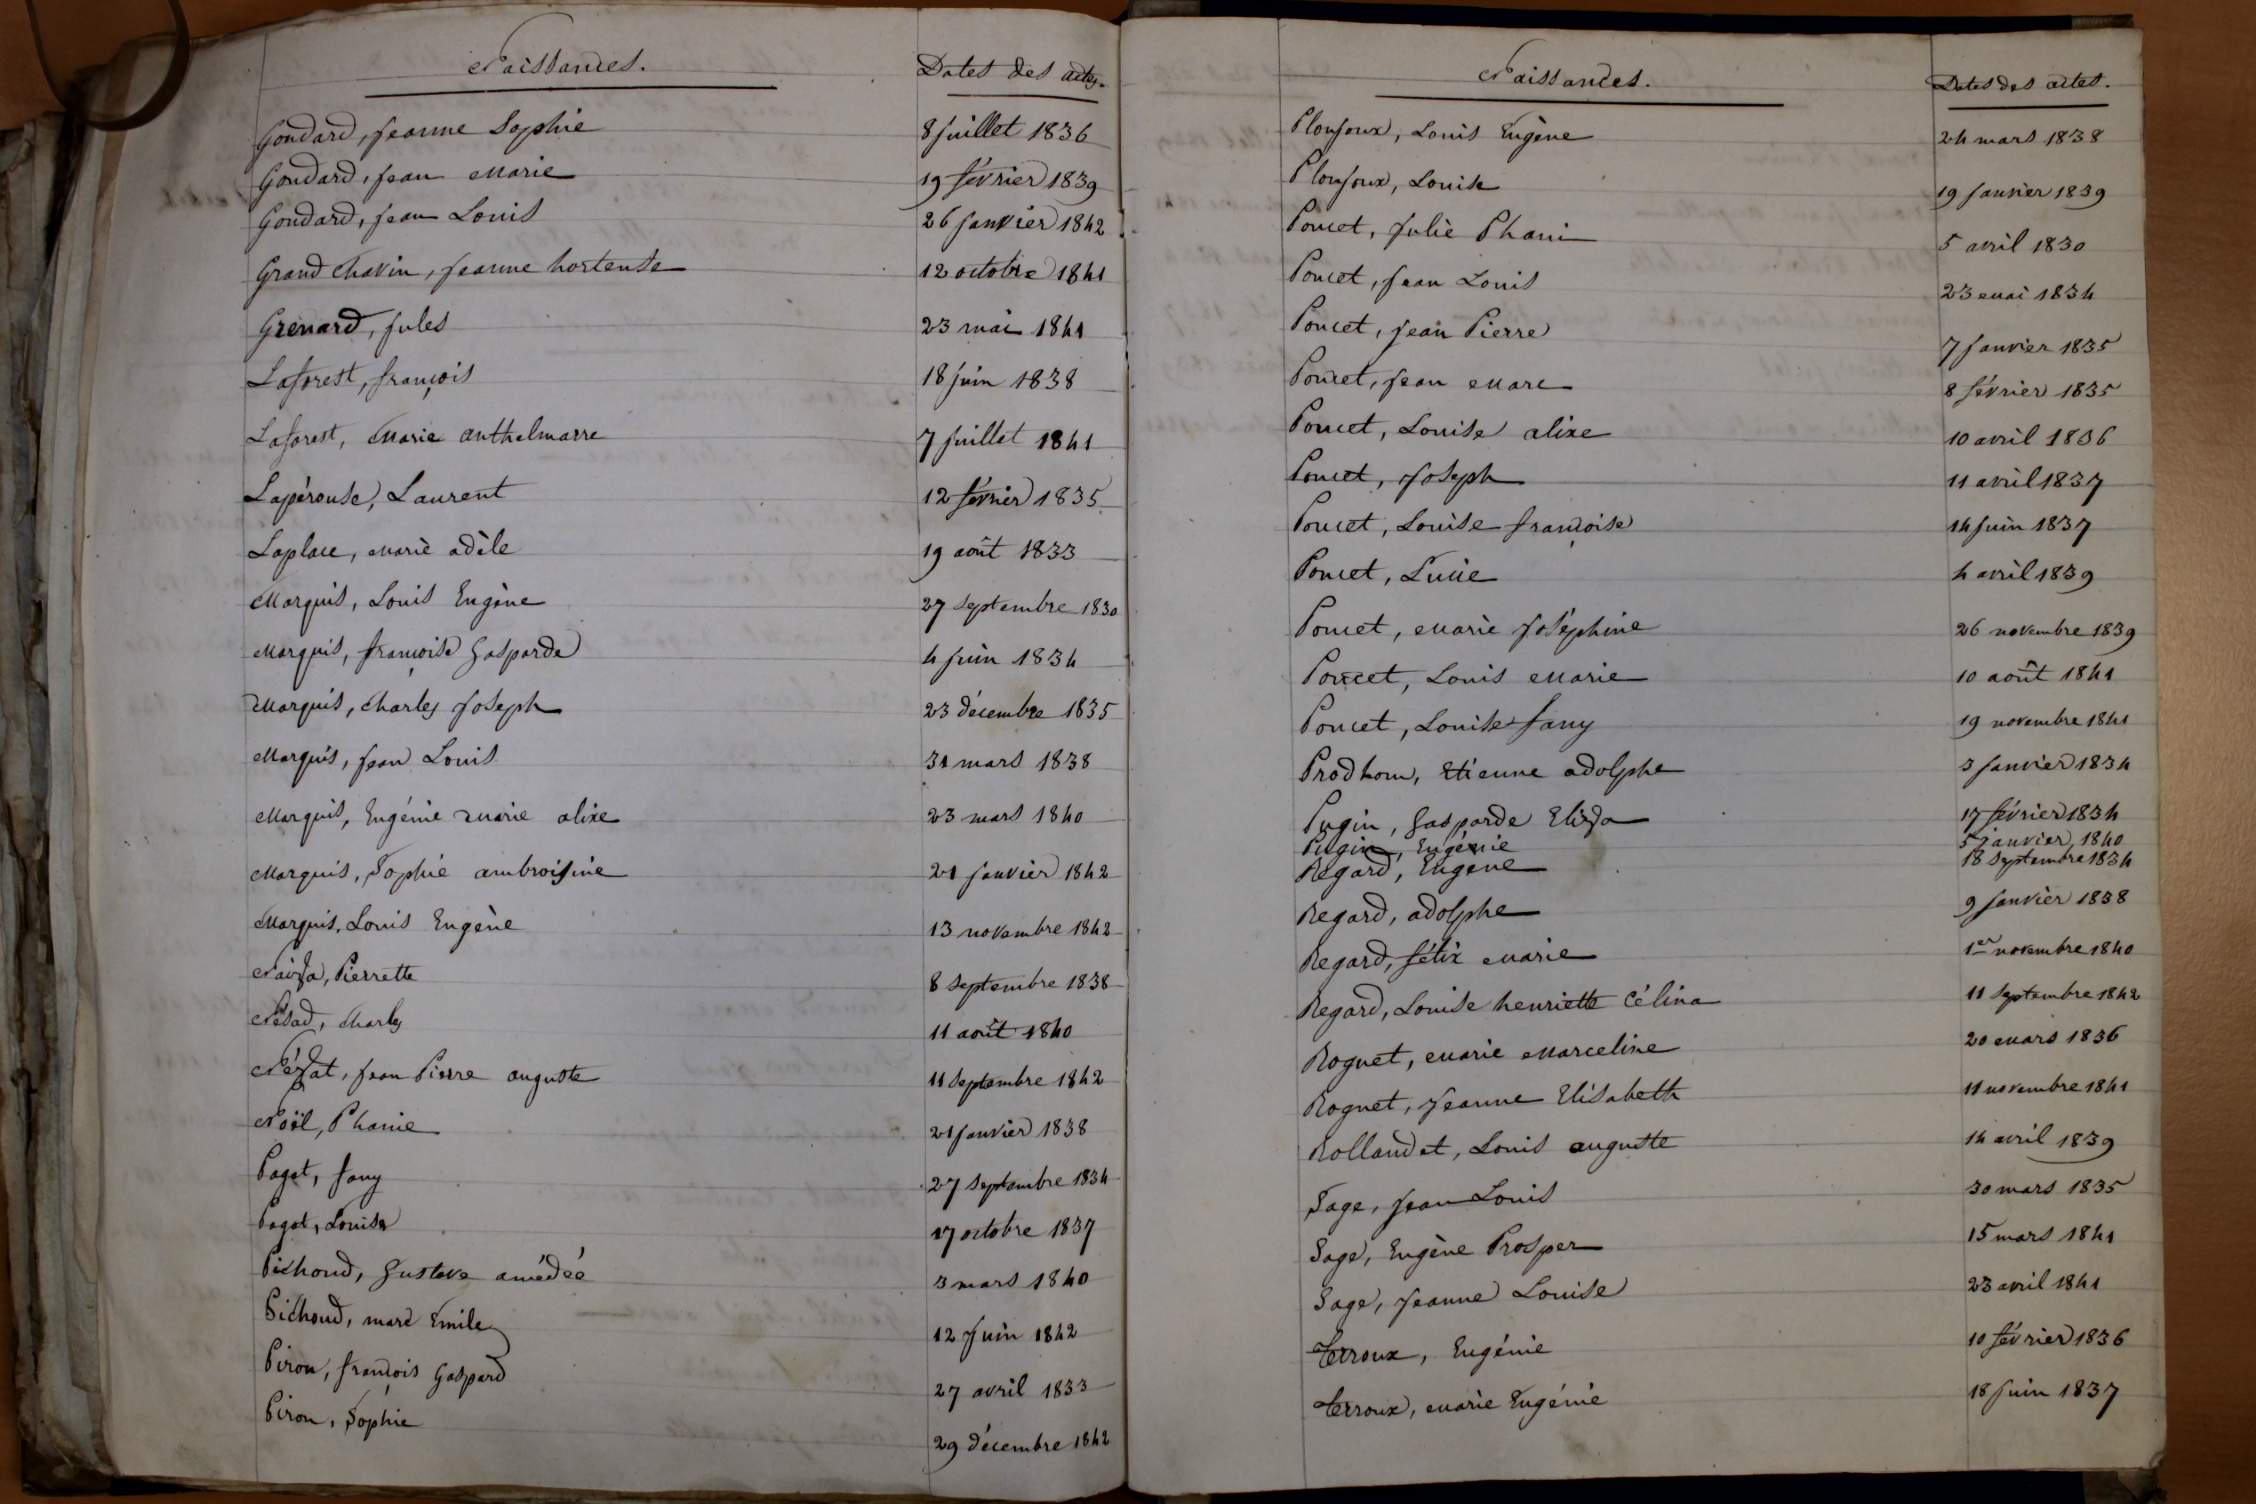 Naissances.
Dates des actes.
Goudard, Jeanne Sophie 8 juillet 1836
Goudard, Jean Marie 19 février 1839
Goudard, Jean Louis 26 janvier 1842
Grand Chavin, Jeanne hortense 12 octobre 1841
Grenard, Jules 23 mai 1841
Laforest, françois 18 juin 1838
Laforest, Marie anthelmarre 7 juillet 1841
Lapérouse, Laurent 12 février 1835
Laplace, Marie adèle 19 août 1833
Marquis, Louis Eugène 27 septembre 1830
Marquis, françoise Gasparde 4 juin 1834
Marquis, Charles Joseph 23 décembre 1835
Marquis, Jean Louis 31 mars 1838
Marquis, Eugénie Marie alixe 23 mars 1840
Marquis, Sophie ambroisine 21 janvier 1842
Marquis, Louis Eugène 13 novembre 1842
Naiza, Pierrette 8 septembre 1838
Nésad, Charles 11 août 1840
Nézat, Jean Pierre auguste 11 septembre 1842
Noël, Phanie 21 janvier 1838
Paget, fany 27 septembre 1834
Paget, Louise 17 octobre 1837
Pichoud, Gustave amédée 3 mars 1840
Pichoud, marc Emile 12 Juin 1842
Piron, françois Gaspard 27 avril 1833
Piron, Sophie 29 décembre 1842
Naissances.
Dates des actes.
Ploujoux, Louis Eugène 24 mars 1838
Ploujoux, Louise 19 janvier 1839
Poncet, Julie Phani 5 avril 1830
Poncet, Jean Louis 23 mai 1834
Poncet, Jean Pierre 7 janvier 1835
Poncet, Jean Marc 8 février 1835
Poncet, Louise alixe 10 avril 1836
Poncet, Joseph 11 avril 1837
Poncet, Louise françoise 14 juin 1837
Poncet, Lucie 4 avril 1839
Poncet, Marie Joséphine 26 novembre 1839
Poncet, Louis Marie 10 août 1841
Poncet, Louise fany 19 novembre 1841
Prodhom, Etienne adolphe 3 janvier 1834
Pugin, Gasparde Eliza 17 février 1834
Pugin, Eugénie 5 janvier 1840
Regard, Eugène 18 septembre 1834
Regard, adolphe 9 janvier 1838
Regard, félix Marie 1er novembre 1840
Regard, Louise henriette Célina 11 septembre 1842
Roguet, Marie Marceline 20 mars 1836
Roguet, Jeanne Elisabeth 11 novembre 1841
Rollandet, Louis auguste 14 avril 1839
Sage, Jean Louis 30 mars 1835
Sage, Eugène Prosper 15 mars 1841
Sage, Jeanne Louise 23 avril 1841
Terroux, Eugénie 10 février 1836
Terroux, Marie Eugénie 18 juin 1837